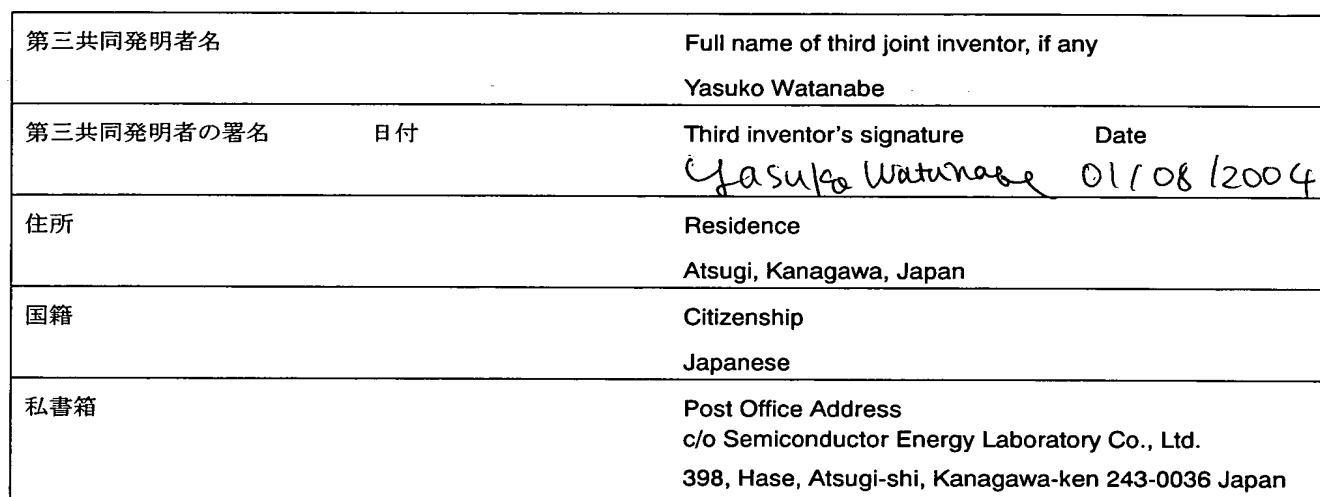 第三共同発明者名
Full name of third joint inventor, if any
Yasuko Watanabe
第三共同発明者の署名 日付
Third inventor's signature Date
Yasuko Watanabe 01/08/2004
住所
Residence
Atsugi, Kanagawa, Japan
国籍
Citizenship
Japanese
私書箱
Post Office Address
c/o Semiconductor Energy Laboratory Co., Ltd.
398, Hase, Atsugi-shi, Kanagawa-ken 243-0036 Japan